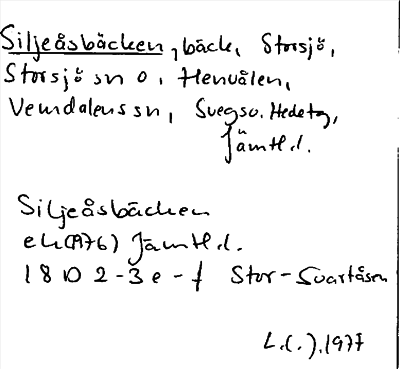 Siljeåsbäcken, bäck, Storsjö,
Storsjö sn o. Henvålen,
Vemdalens sn, Svegs o. Hede tg,
Jämtl.l.
Siljeåsbäcken
ek (1976) Jämtl.l.
18 D 2-3 e-f Stor-Svartåsen
1977